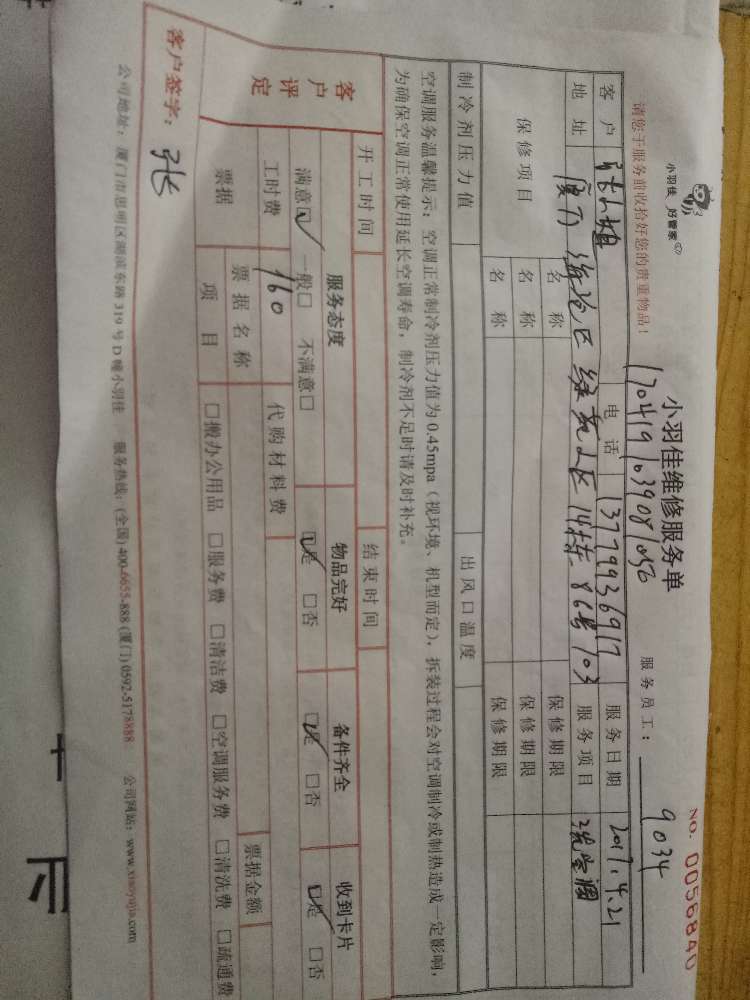 小羽佳 好管家
小羽佳维修服务单
NO. 0056840
1704191039081056
请您于服务前收拾好您的贵重物品!
服务员工: 9034
客户 张小姐 电话 13779936917 服务日期 2017.4.21
地址 厦门海沧区绿苑小区14栋86号103 服务项目 洗空调
保修项目 名称 保修期限
名称 保修期限
名称 保修期限
制冷剂压力值 出风口温度
空调服务温馨提示:空调正常制冷剂压力值为0.45mpa(视环境、机型而定),拆装过程会对空调制冷或制热造成一定影响,
为确保空调正常使用延长空调寿命,制冷剂不足时请及时补充。
开工时间 结束时间
客户评定 服务态度 物品完好 备件齐全 收到卡片
满意☑ 一般□ 不满意□ ☑是 □否 ☑是 □否 ☑是 □否
工时费 160 代购材料费
票据 票据名称 票据金额
项目 □搬办公用品 □服务费 □清洁费 □空调服务费 □清洗费 □疏通费
客户签字: 张
公司地址:厦门市思明区湖滨东路319号D幢小羽佳 服务热线:(全国)400-6655-888 (厦门)0592-5178888 公司网站:www.xiaoyujia.com